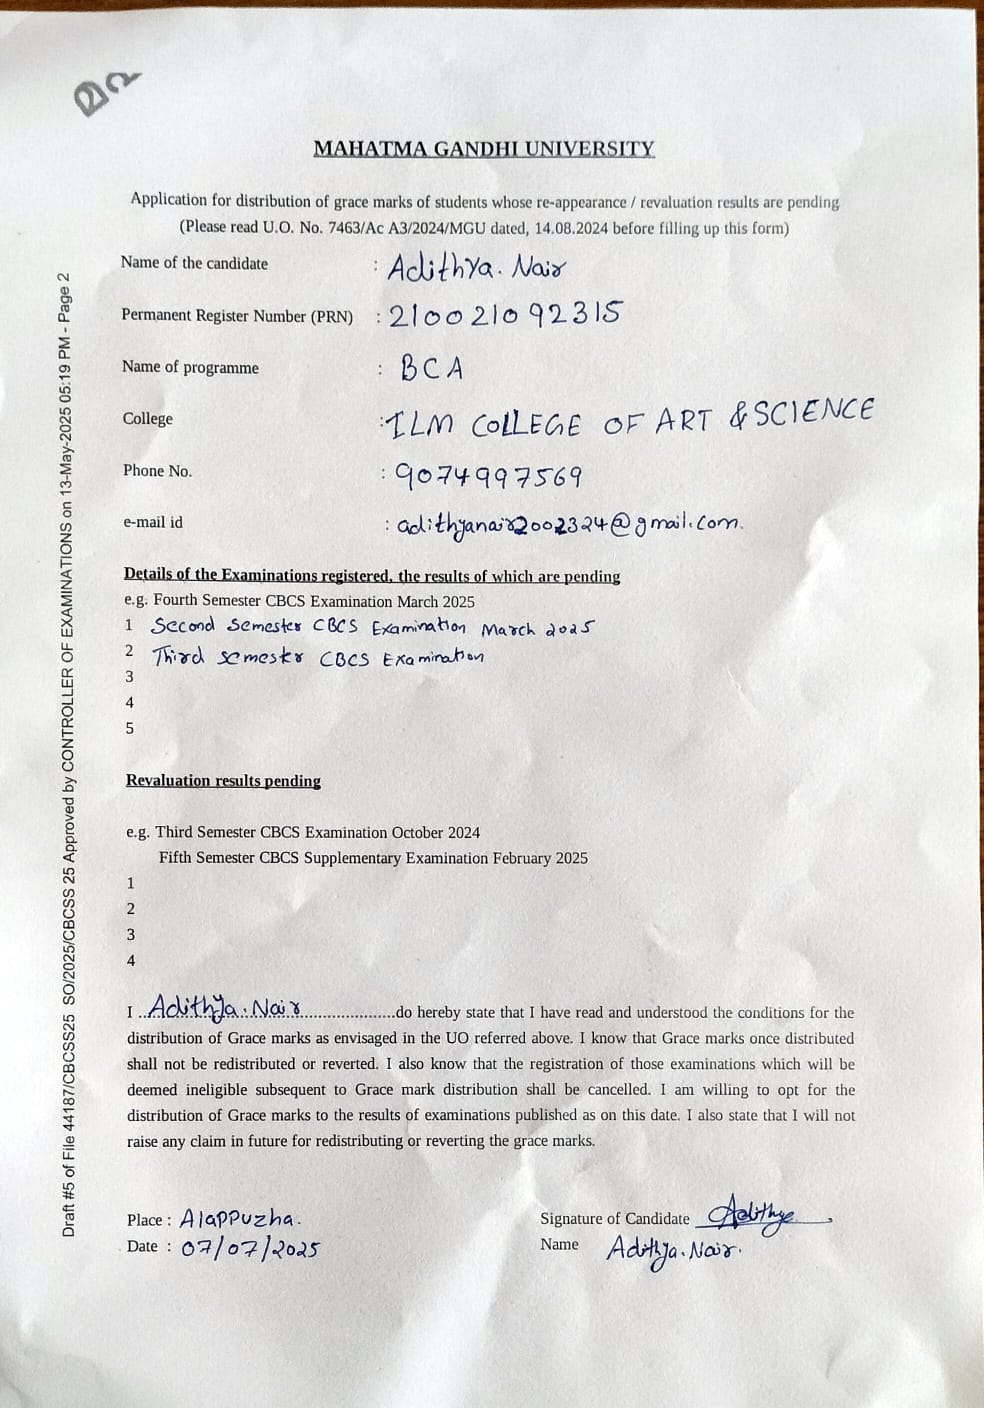 മറ
MAHATMA GANDHI UNIVERSITY
Application for distribution of grace marks of students whose re-appearance / revaluation results are pending
(Please read U.O. No. 7463/Ac A3/2024/MGU dated, 14.08.2024 before filling up this form)
Name of the candidate : Adithya. Nair
Permanent Register Number (PRN) : 210021092315
Name of programme : BCA
College : ILM COLLEGE OF ART & SCIENCE
Phone No. : 9074997569
e-mail id : adithyanair2002324@gmail.com.
Details of the Examinations registered, the results of which are pending
e.g. Fourth Semester CBCS Examination March 2025
1 Second Semester CBCS Examination March 2025
2 Third semester CBCS Examination
3
4
5
Revaluation results pending
e.g. Third Semester CBCS Examination October 2024
Fifth Semester CBCS Supplementary Examination February 2025
1
2
3
4
I ..Adithya. Nair......................do hereby state that I have read and understood the conditions for the
distribution of Grace marks as envisaged in the UO referred above. I know that Grace marks once distributed
shall not be redistributed or reverted. I also know that the registration of those examinations which will be
deemed ineligible subsequent to Grace mark distribution shall be cancelled. I am willing to opt for the
distribution of Grace marks to the results of examinations published as on this date. I also state that I will not
raise any claim in future for redistributing or reverting the grace marks.
Place : Alappuzha.
Signature of Candidate Adithya
Date : 07/07/2025
Name Adithya. Nair.
Draft #5 of File 44187/CBCSS25 SO/2025/CBCSS 25 Approved by CONTROLLER OF EXAMINATIONS on 13-May-2025 05:19 PM - Page 2